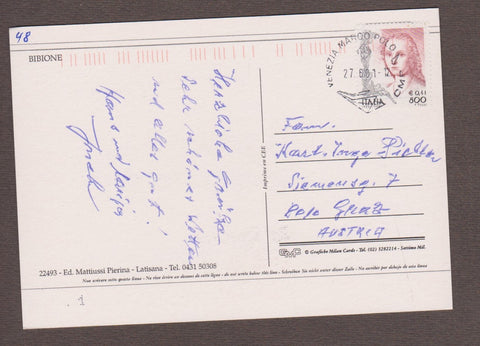 48
BIBIONE
Herzliche Grüße
sehr schönes Wetter
und alles gut!
Hans und
VENEZIA MARCO POLO
27.6
CMP
€ 0,41
800
ITALIA
Fam.
Karl, Inge
Graz
AUSTRIA
Imprime en CEE
GMC © Grafiche Milan Cards - Tel. (02) 3282214 - Settimo Mil.
22493 - Ed. Mattiussi Pierina - Latisana - Tel. 0431 50308
Non scrivere sotto questa linea - Ne rien écrire au dessous de cette ligne - do not write below this line - Schreiben Sie nicht unter dieser Zeile - No escribir por debajo de esta linea
1